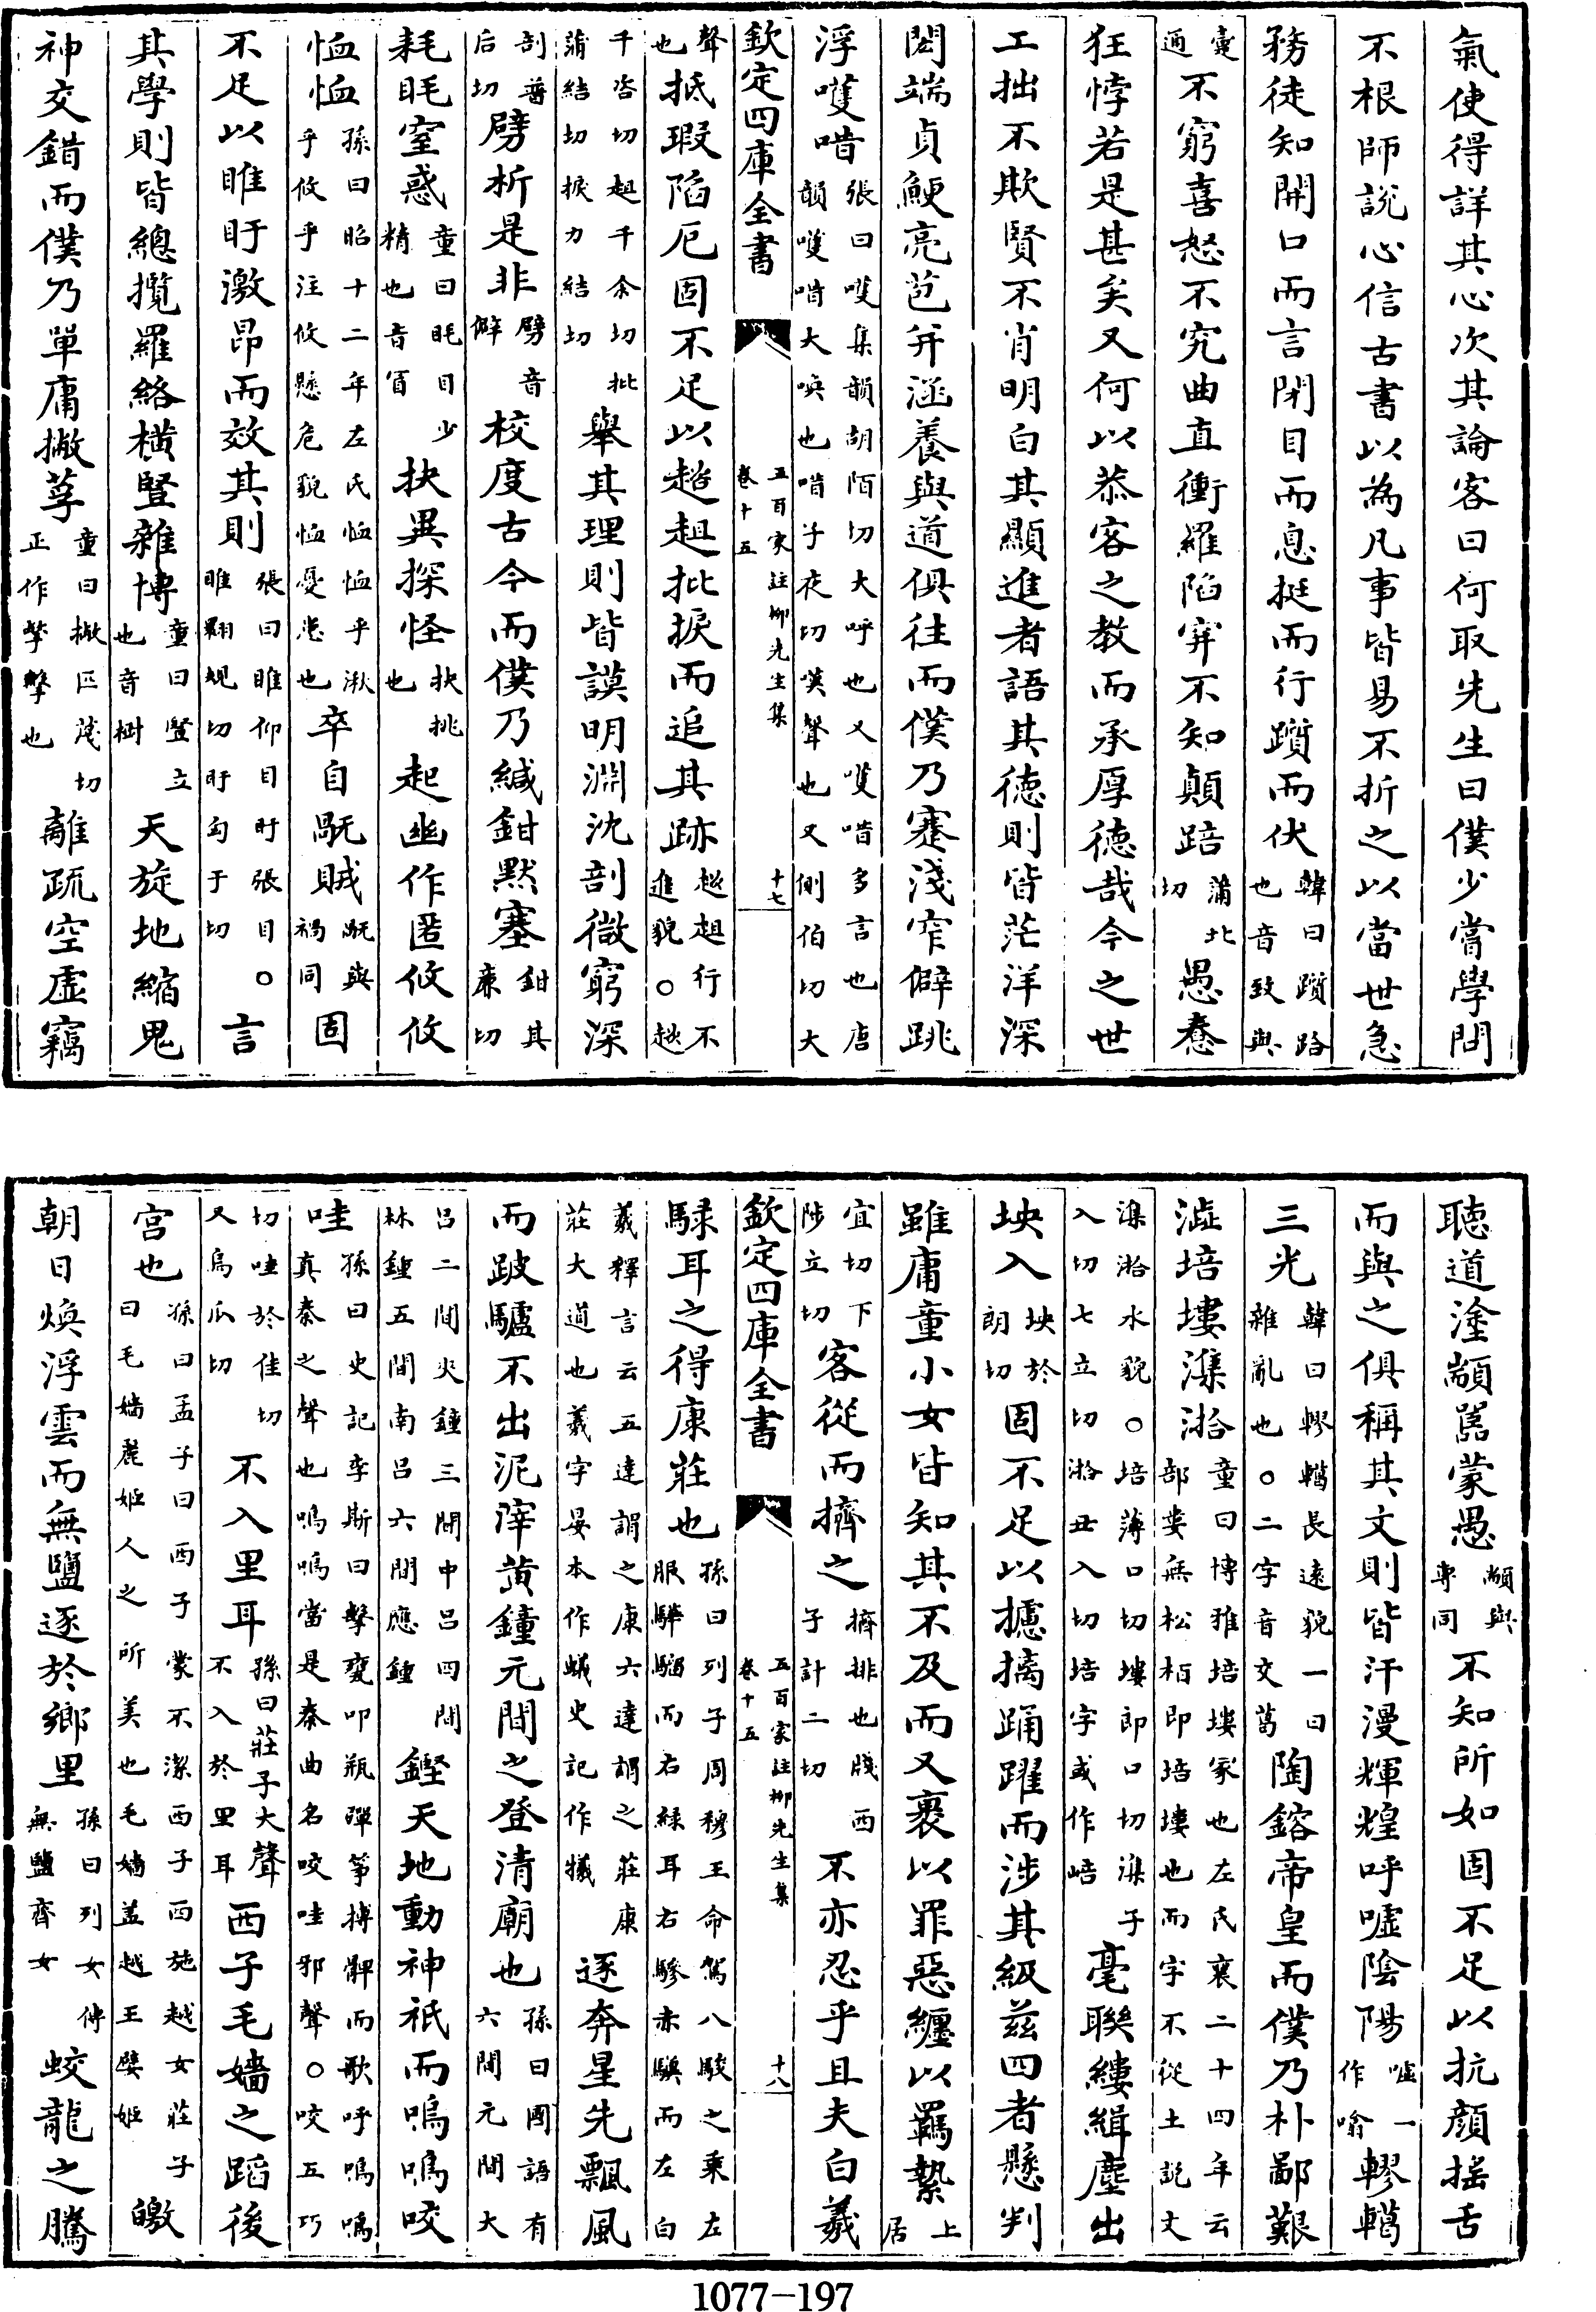 氣使得詳其心次其論客曰何取先生曰僕少嘗學問
不根師說心信古書以為凡事皆易不折之以當世急
務徒知開口而言閉目而息挺而行躓而伏韓曰躓路也音致與
疐通不窮喜怒不究曲直衝羅陷穽不知顛踣蒲北切愚惷
狂悖若是甚矣又何以恭客之教而承厚德哉今之世
工拙不欺賢不肖明白其顯進者語其德則皆茫洋深
閎端貞鯁亮苞并涵養與道俱往而僕乃蹇淺窄僻跳
浮嚄唶張曰嚄集韻胡陌切大呼也又嚄唶多言也唐韻嚄唶大喚也唶子夜切嘆聲也又側伯切大
欽定四庫全書 五百家註柳先生集 卷十五 十七
聲也抵瑕陷厄固不足以趦趄批捩而追其跡趦趄行不進貌○趦
千咨切趄千余切批蒲結切捩力結切舉其理則皆謨明淵沈剖微窮深
剖普后切劈析是非劈音僻校度古今而僕乃緘鉗默塞鉗其廉切
耗眊窒惑童曰眊目少精也音冒抉異探怪抉挑也起幽作匿攸攸
恤恤孫曰昭十二年左氏恤恤乎湫乎攸乎注攸懸危貌恤憂患也卒自旤賊旤與禍同固
不足以睢盱激昂而效其則張曰睢仰目盱張目○睢翾規切盱匈于切言
其學則皆總攬羅絡橫豎雜博童曰豎立也音樹天旋地縮鬼
神交錯而僕乃單庸撇莩童曰撇匹蔑切正作擎擊也離疏空虛竊
聽道塗顓嚚蒙愚顓與專同不知所如固不足以抗顏搖舌
而與之俱稱其文則皆汗漫輝煌呼噓陰陽噓一作喻轇轕
三光韓曰轇轕長遠貌一曰雜亂也○二字音交葛陶鎔帝皇而僕乃朴鄙艱
澁培塿潗湁童曰博雅培塿冢也左氏襄二十四年云部婁無松柏即培塿也而字不從土說文
潗湁水貌○培薄口切塿郎口切潗子入切七立切湁丑入切培字或作峿毫聯縷緝塵出
坱入坱於朗切固不足以攄摛踊躍而涉其級茲四者懸判
雖庸童小女皆知其不及而又裹以罪惡纏以羈縶上居
宜切下陟立切客從而擠之擠排也牋西子計二切不亦忍乎且夫白羲
欽定四庫全書 五百家註柳先生集 卷十五 十八
騄耳之得康莊也孫曰列子周穆王命駕八駿之乘左服驊騮而右綠耳右驂赤驥而左白
羲釋言云五達謂之康六達謂之莊康莊大道也羲字晏本作䗁史記作犧逐奔星先飄風
而跛驢不出泥滓黃鐘元間之登清廟也孫曰國語有六間元間大
呂二間夾鍾三間中呂四間林鍾五間南呂六間應鍾鏗天地動神祇而嗚嗚咬
哇孫曰史記李斯曰擊甕叩瓶彈箏搏髀而歌呼嗚嗚真秦之聲也嗚嗚當是秦曲名咬哇邪聲○咬五巧
切哇於佳切又烏瓜切不入里耳孫曰莊子大聲不入於里耳西子毛嬙之蹈後
宮也孫曰孟子曰西子蒙不潔西子西施越女莊子曰毛嬙麗姬人之所美也毛嬙蓋越王嬖姬皦
朝日煥浮雲而無鹽逐於鄉里孫曰列女傳無鹽齊女蛟龍之騰
1077-197